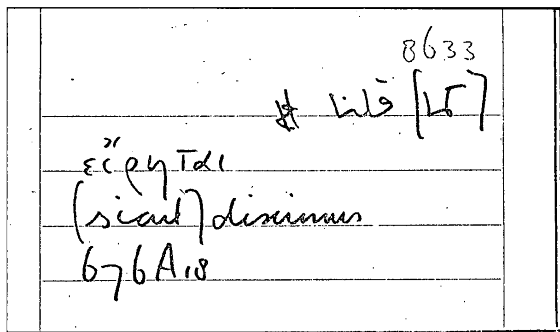 8633
قلنا
εἴρηται
(sicut) diximus
676A18